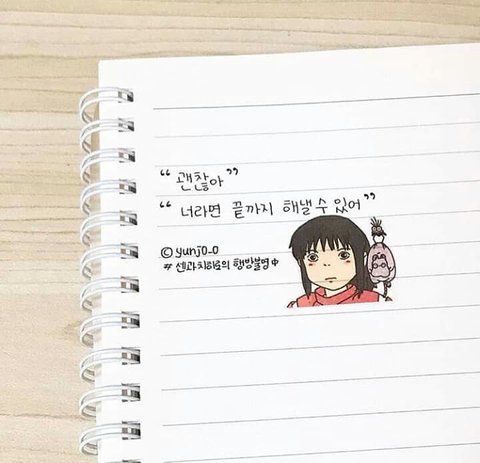 “ 괜찮아 ”
“ 너라면 끝까지 해낼 수 있어 ”
© yunjo_o
# 센과 치히로의 행방불명 中